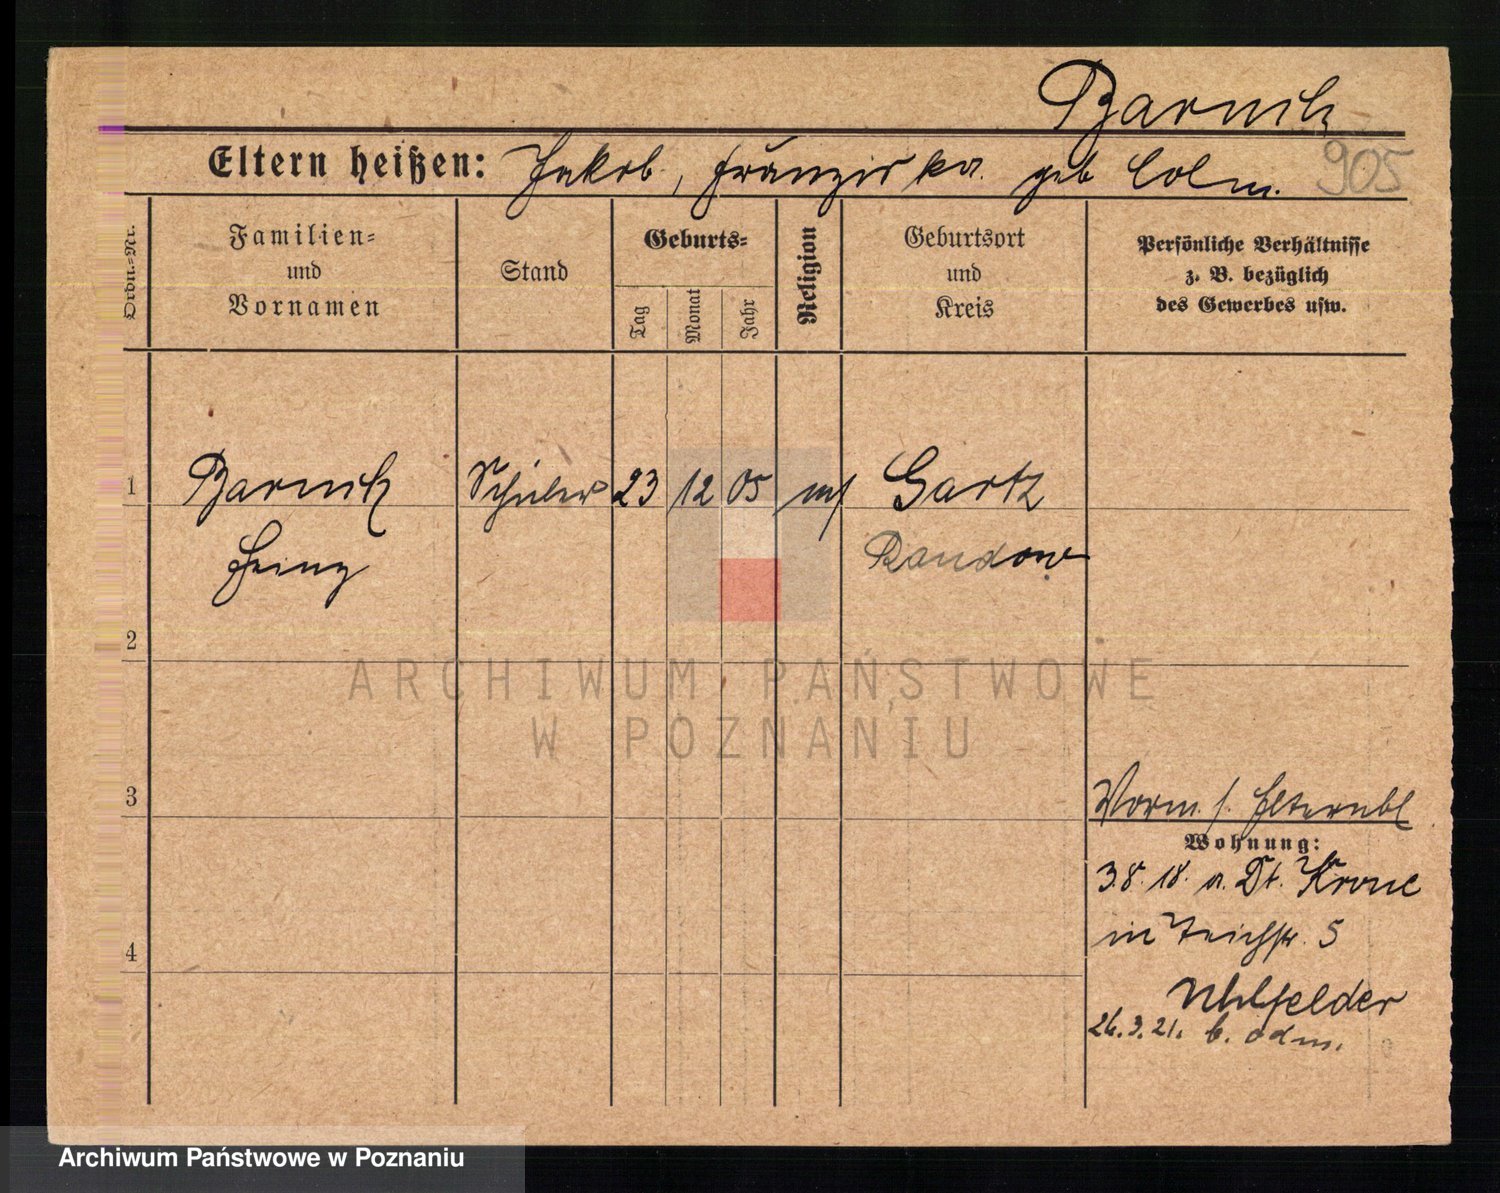 Barnitz
Eltern heißen: Jakob, Franziska geb
905
Ordn.-Nr.
Familien-
und
Vornamen
Stand
Geburts-
Tag
Monat
Jahr
Religion
Geburtsort
und
Kreis
Persönliche Verhältnisse
z. B. bezüglich
des Gewerbes usw.
1
Barnitz Schüler 23 12 05 Gartz
Heinz
Randow
2
ARCHIWUM PAŃSTWOWE
W POZNANIU
3
Vorm. s. Elternbl
Wohnung:
3.8.18. a. Dt. Krone
in Teichstr. 5
4
Uhlfelder
26.3.21.
Archiwum Państwowe w Poznaniu